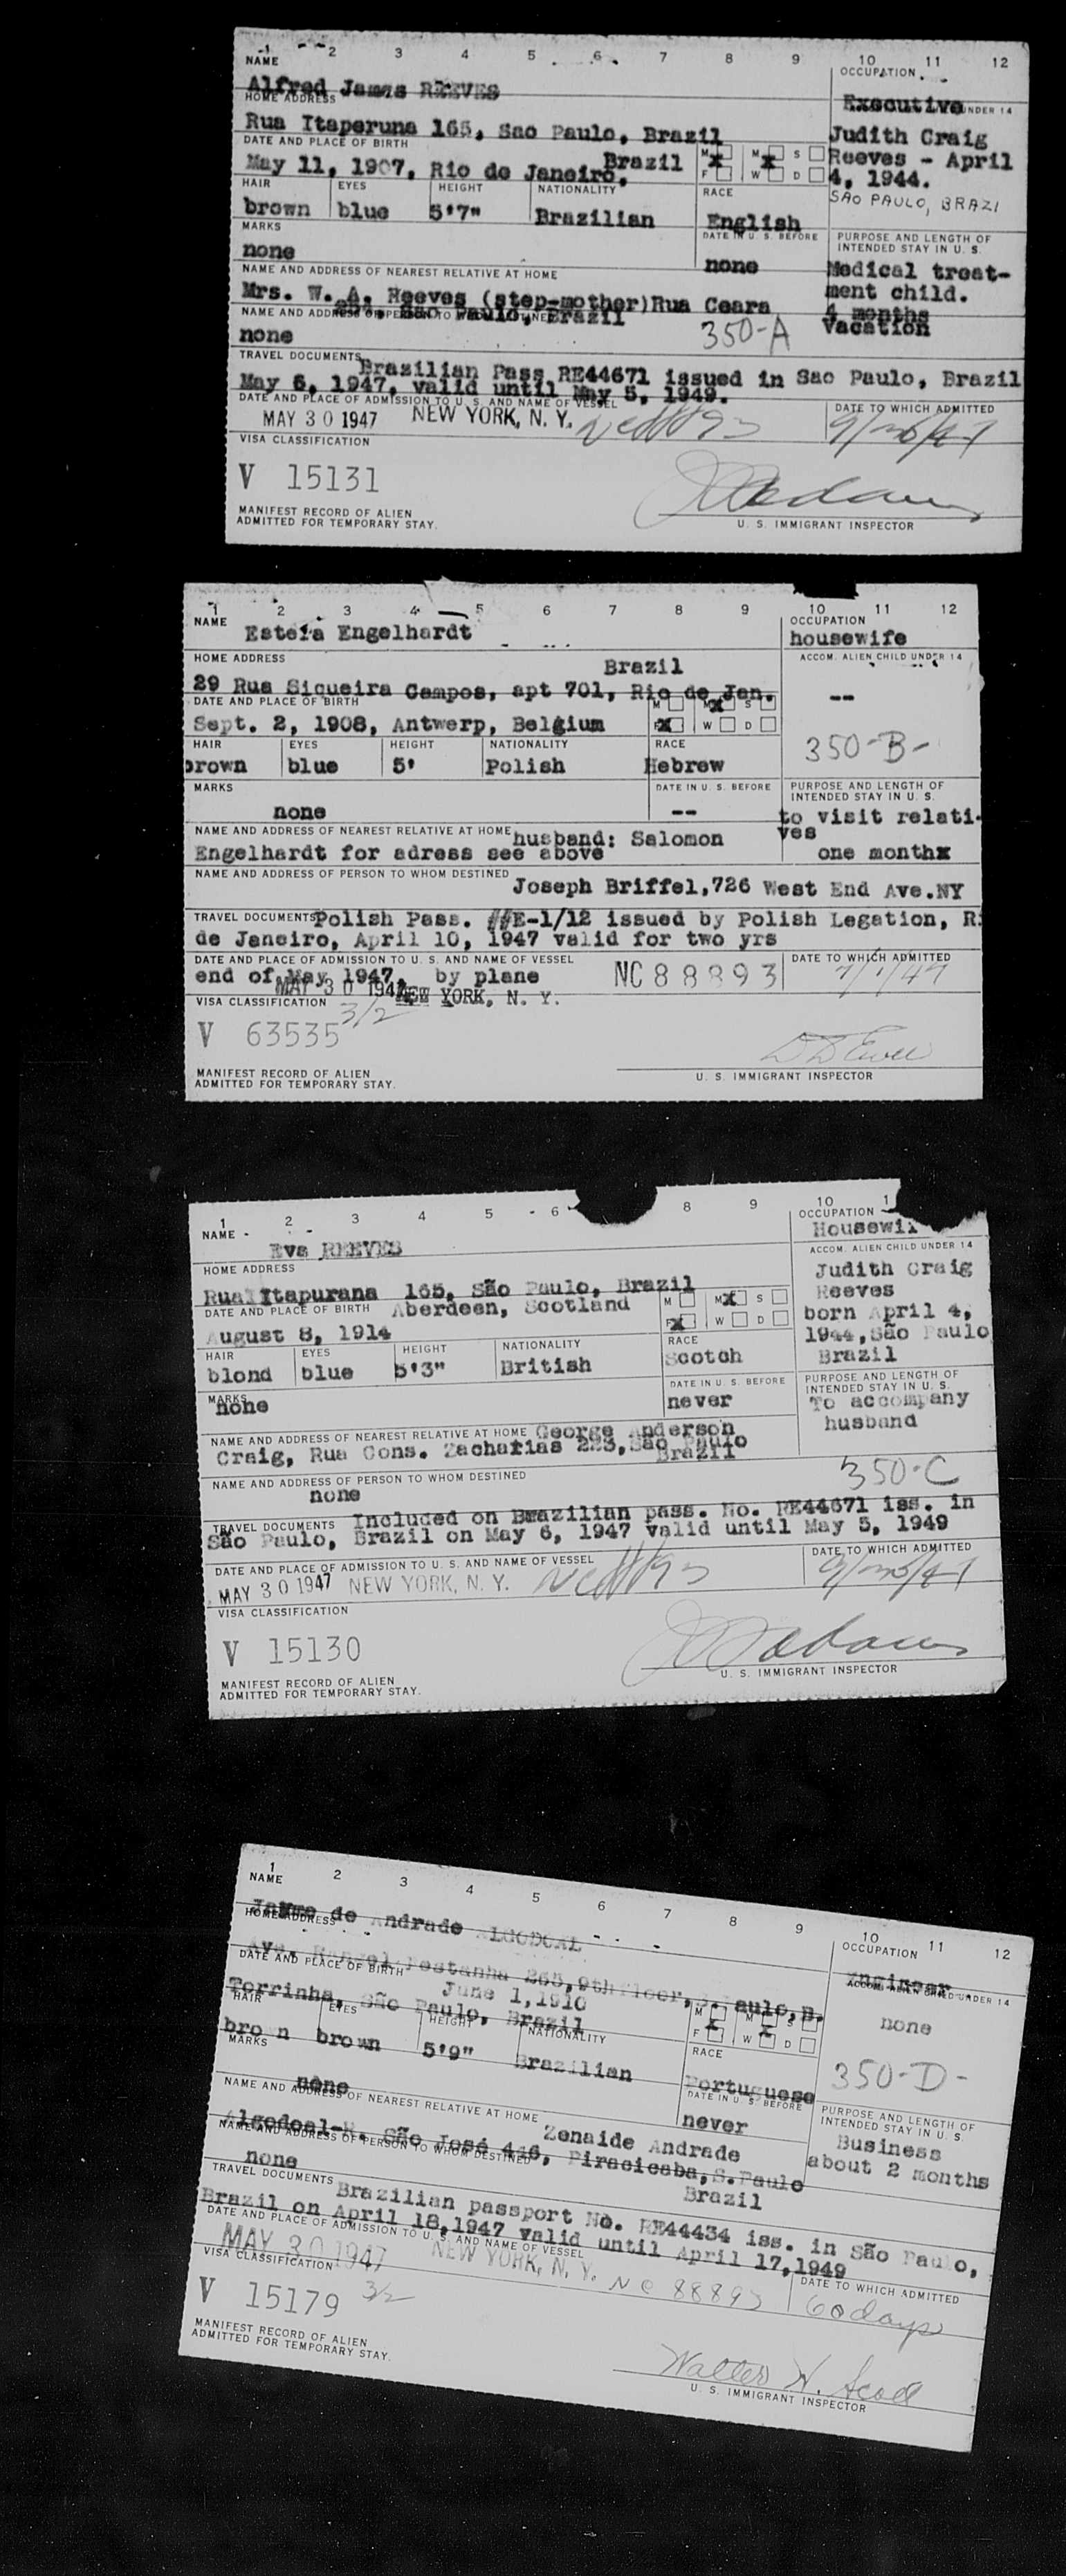 1 2 3 4 5 6 7 8 9 10 11 12
NAME
OCCUPATION
Alfred James REEVES
Executive
HOME ADDRESS
UNDER 14
Rua Itaperuna 165, Sao Paulo, Brazil
Judith Craig
DATE AND PLACE OF BIRTH
M M S
Reeves - April
May 11, 1907, Rio de Janeiro, Brazil
X X
F W D
4, 1944.
HAIR EYES HEIGHT NATIONALITY RACE
SAO PAULO, BRAZI
brown blue 5'7" Brazilian English
MARKS
DATE IN U. S. BEFORE
PURPOSE AND LENGTH OF
INTENDED STAY IN U. S.
none
none
Medical treat-
NAME AND ADDRESS OF NEAREST RELATIVE AT HOME
ment child.
Mrs. W. A. Reeves (step-mother)Rua Ceara
4 months
Sao Paulo, Brazil
Vacation
none
350-A
TRAVEL DOCUMENTS
Brazilian Pass RE44671 issued in Sao Paulo, Brazil
May 6, 1947, valid until May 5, 1949.
DATE AND PLACE OF ADMISSION TO U. S. AND NAME OF VESSEL
DATE TO WHICH ADMITTED
MAY 30 1947 NEW YORK, N. Y.
VISA CLASSIFICATION
V 15131
MANIFEST RECORD OF ALIEN
ADMITTED FOR TEMPORARY STAY.
U. S. IMMIGRANT INSPECTOR
1 2 3 4 5 6 7 8 9 10 11 12
NAME
OCCUPATION
Estera Engelhardt
housewife
HOME ADDRESS
ACCOM. ALIEN CHILD UNDER 14
Brazil
29 Rua Siqueira Campos, apt 701, Rio de Jan.
--
DATE AND PLACE OF BIRTH
M M X S
Sept. 2, 1908, Antwerp, Belgium
F X W D
HAIR EYES HEIGHT NATIONALITY RACE
350-B-
brown blue 5' Polish Hebrew
MARKS
DATE IN U. S. BEFORE
PURPOSE AND LENGTH OF
INTENDED STAY IN U. S.
none
--
to visit relati-
ves
NAME AND ADDRESS OF NEAREST RELATIVE AT HOME
husband: Salomon
Engelhardt for adress see above
one monthx
NAME AND ADDRESS OF PERSON TO WHOM DESTINED
Joseph Briffel,726 West End Ave.NY
TRAVEL DOCUMENTS
Polish Pass. ##E-1/12 issued by Polish Legation, Ri
de Janeiro, April 10, 1947 valid for two yrs
DATE AND PLACE OF ADMISSION TO U. S. AND NAME OF VESSEL
DATE TO WHICH ADMITTED
end of May 1947, by plane
NC 88893
7/1/47
MAY 30 1947 NEW YORK, N. Y.
VISA CLASSIFICATION
3/2
V 63535
MANIFEST RECORD OF ALIEN
ADMITTED FOR TEMPORARY STAY.
U. S. IMMIGRANT INSPECTOR
1 2 3 4 5 6 8 9 10 1
NAME
OCCUPATION
Eva REEVES
Housewi
HOME ADDRESS
ACCOM. ALIEN CHILD UNDER 14
Rua Itapurana 165, São Paulo, Brazil
Judith Craig
Reeves
DATE AND PLACE OF BIRTH
Aberdeen, Scotland
M M X S
born April 4,
August 8, 1914
F X W D
1944,São Paulo
Brazil
HAIR EYES HEIGHT NATIONALITY RACE
blond blue 5'3" British Scotch
MARKS
DATE IN U. S. BEFORE
PURPOSE AND LENGTH OF
INTENDED STAY IN U. S.
none
never
To accompany
husband
NAME AND ADDRESS OF NEAREST RELATIVE AT HOME
George Anderson
Craig, Rua Cons. Zacharias 223,São Paulo
Brazil
NAME AND ADDRESS OF PERSON TO WHOM DESTINED
350-C
none
TRAVEL DOCUMENTS
Included on Brazilian pass. No. RE44671 iss. in
São Paulo, Brazil on May 6, 1947 valid until May 5, 1949
DATE AND PLACE OF ADMISSION TO U. S. AND NAME OF VESSEL
DATE TO WHICH ADMITTED
MAY 30 1947 NEW YORK, N. Y.
VISA CLASSIFICATION
V 15130
MANIFEST RECORD OF ALIEN
ADMITTED FOR TEMPORARY STAY.
U. S. IMMIGRANT INSPECTOR
1 2 3 4 5 6 7 8 9 10 11 12
NAME
OCCUPATION
de Andrade ALGODOAL
Engineer
HOME ADDRESS
ACCOM. ALIEN CHILD UNDER 14
Ave. Rangel Pestanha 265,9th floor, S.Paulo,B.
none
DATE AND PLACE OF BIRTH
June 1,1910
Torrinha, São Paulo, Brazil
M M S
X X
F W D
HAIR EYES HEIGHT NATIONALITY RACE
350-D-
brown brown 5'9" Brazilian Portuguese
MARKS
DATE IN U. S. BEFORE
PURPOSE AND LENGTH OF
INTENDED STAY IN U. S.
none
never
Business
about 2 months
NAME AND ADDRESS OF NEAREST RELATIVE AT HOME
Zenaide Andrade
Algodoal-R. São José 446, Piracicaba,S.Paulo
Brazil
NAME AND ADDRESS OF PERSON TO WHOM DESTINED
none
TRAVEL DOCUMENTS
Brazilian passport No. RE44434 iss. in São Paulo,
Brazil on April 18,1947 valid until April 17,1949
DATE AND PLACE OF ADMISSION TO U. S. AND NAME OF VESSEL
DATE TO WHICH ADMITTED
MAY 30 1947 NEW YORK, N. Y. NC 88893
60 days
VISA CLASSIFICATION
3/2
V 15179
MANIFEST RECORD OF ALIEN
ADMITTED FOR TEMPORARY STAY.
Walter H. Scott
U. S. IMMIGRANT INSPECTOR